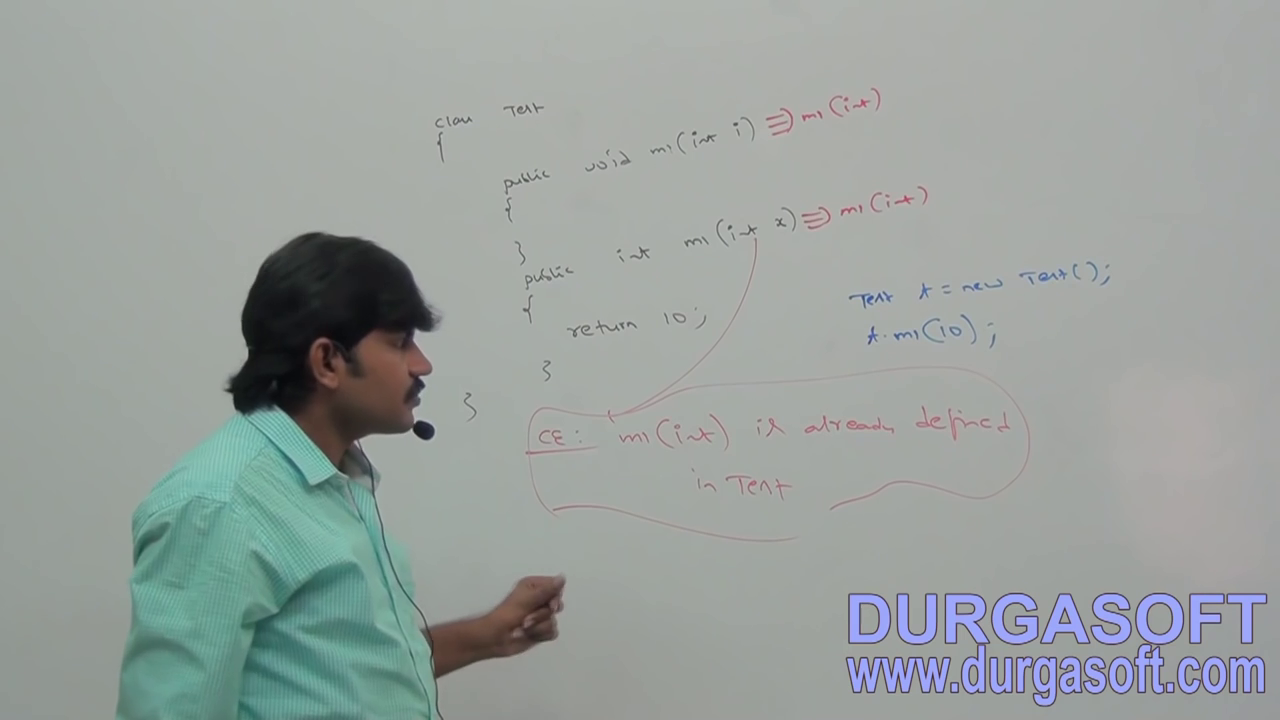 class Test
{
public void m1(int i) ⇒ m1(int)
{
}
public int m1(int x) ⇒ m1(int)
{
return 10;
}
}
Test t = new Test();
t.m1(10);
CE: m1(int) is already defined
in Test
DURGASOFT
www.durgasoft.com